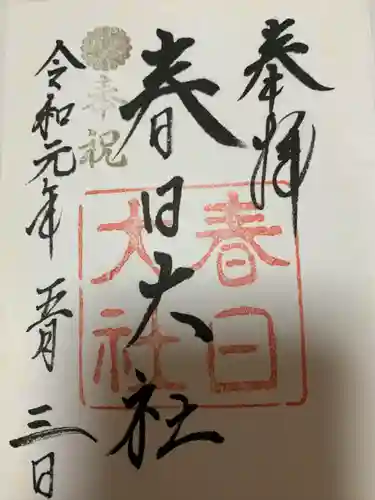 奉拝
春日大社
春日
大社
奉祝
令和元年 五月 三日